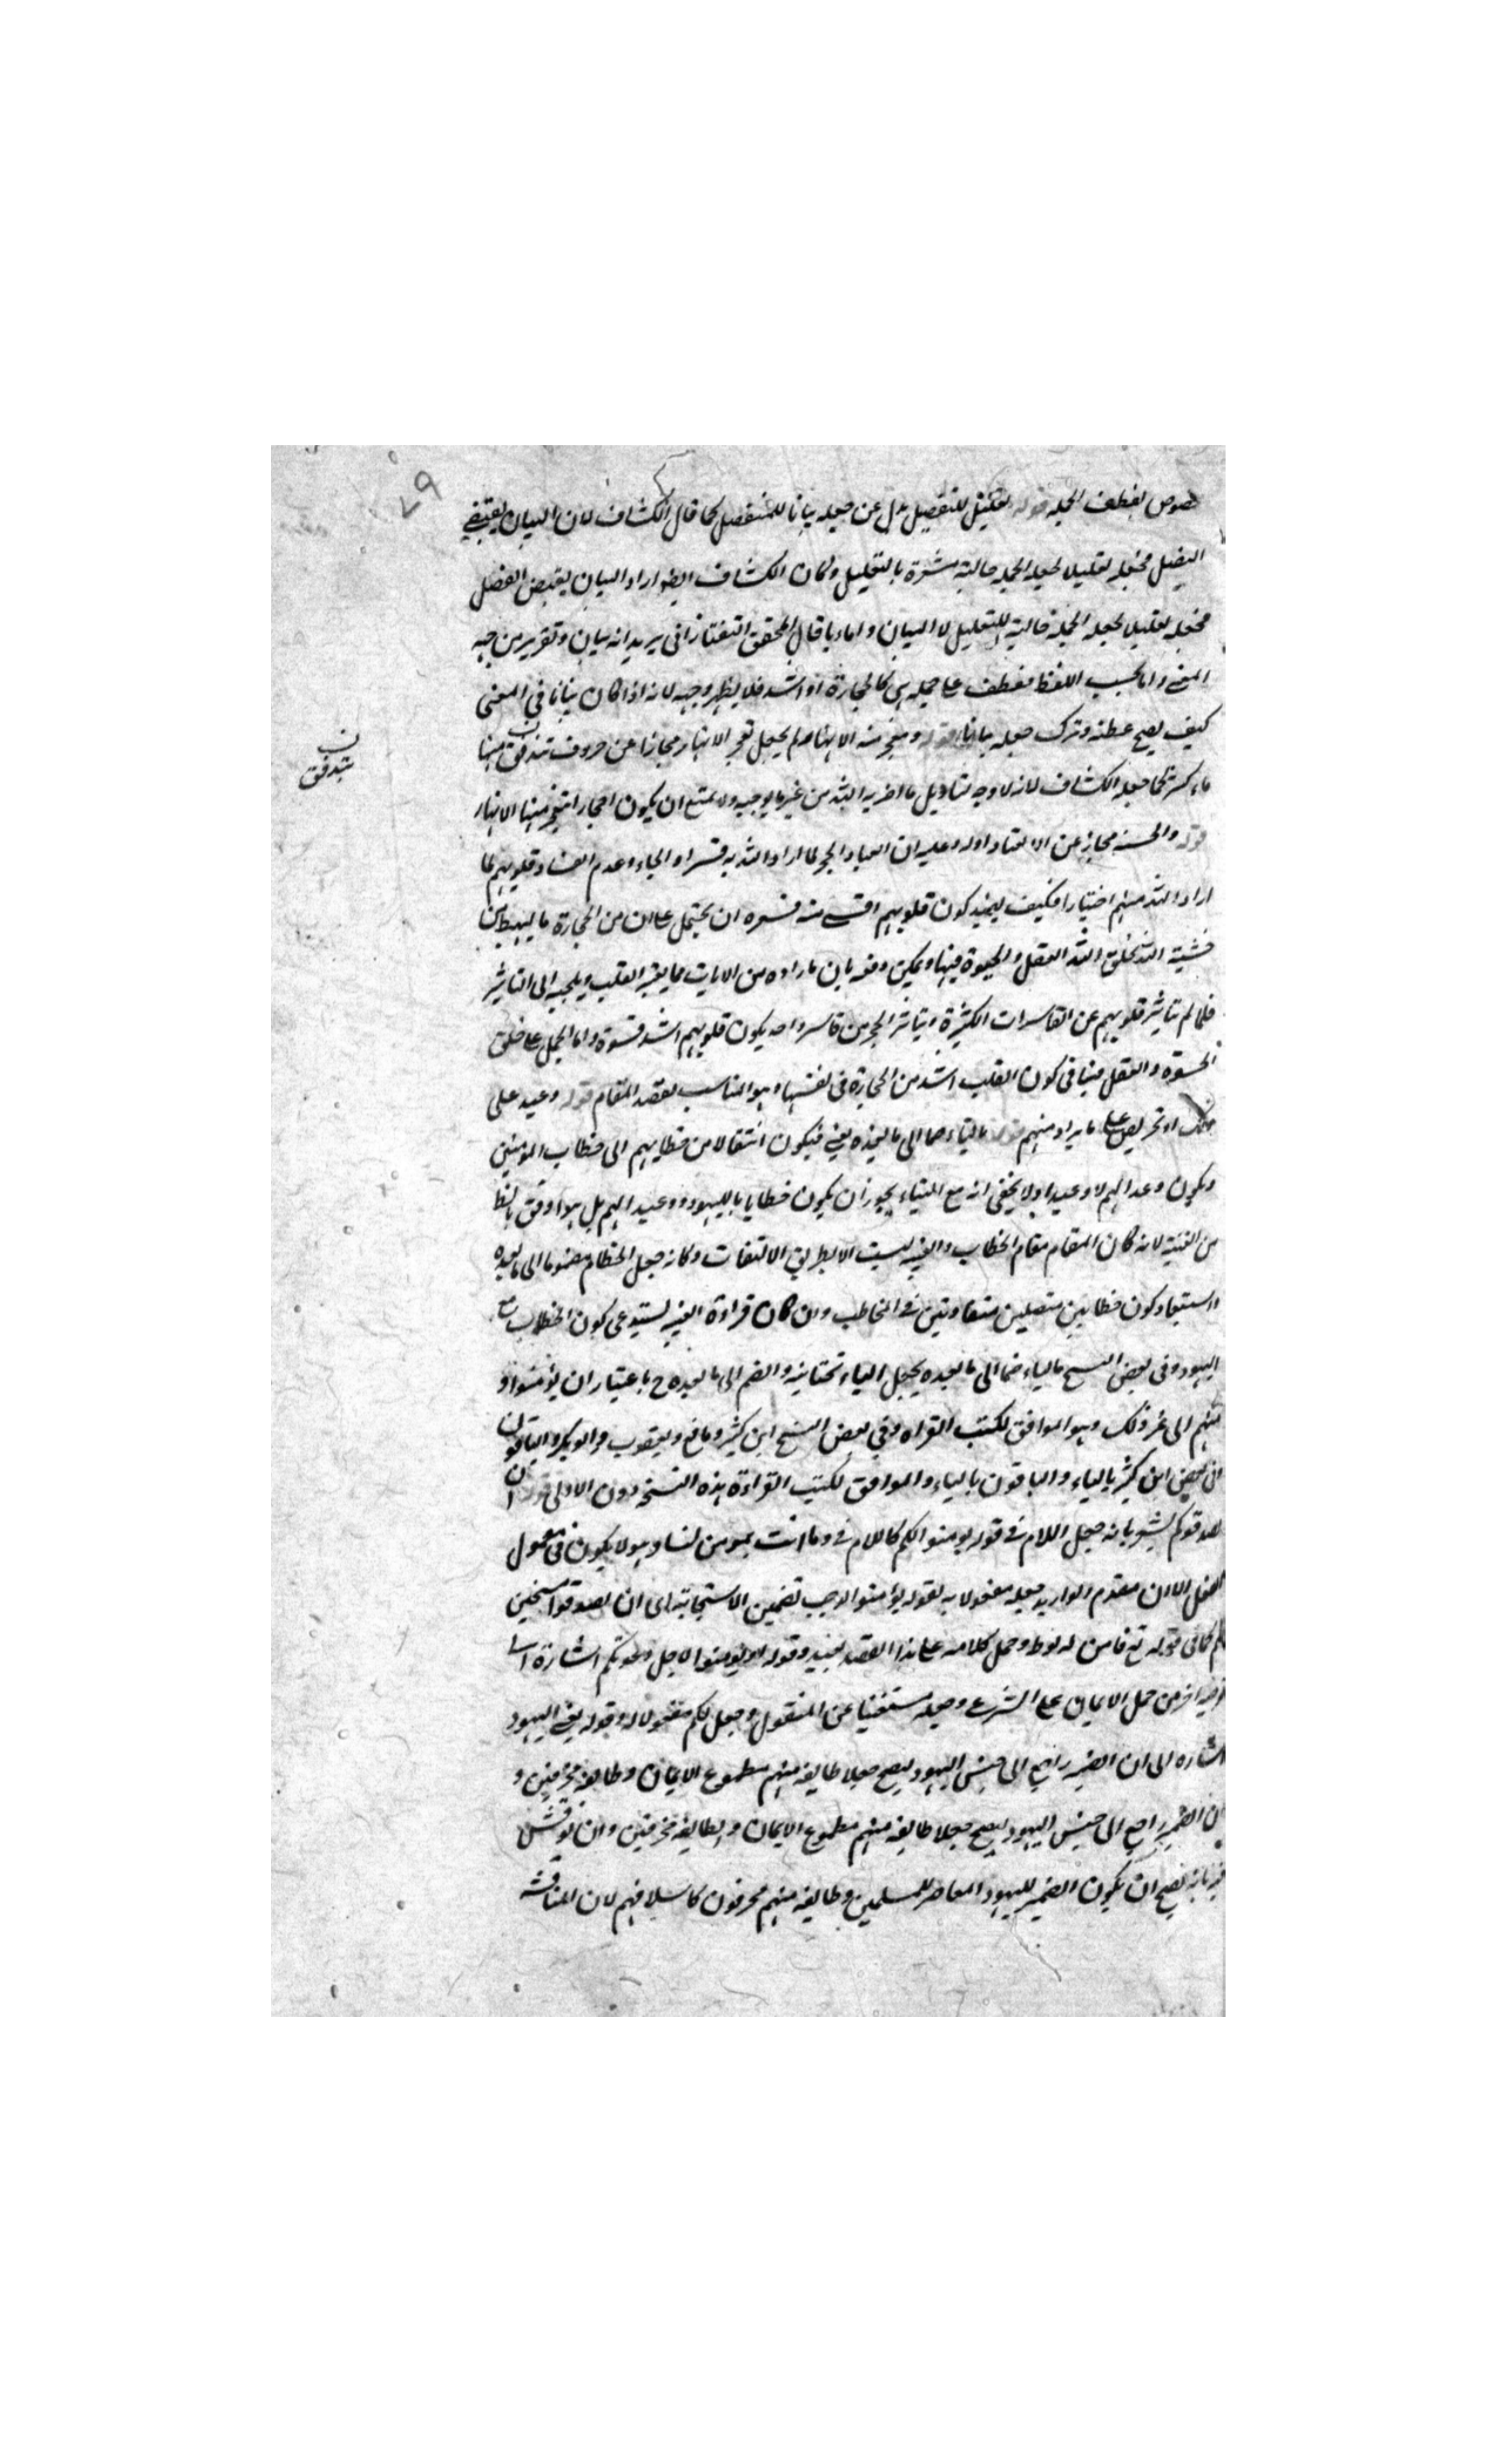 ٧٩
لعطف الجملة قوله تعليل للتفضيل بدل عن جعله بيانا للتفضيل كما قال الكشاف لان البيان يقتضي
الفصل فجعله تعليلا لجعله الجملة حالية مشعرة بالتعليل وكان الكشاف ايضا اراد البيان الفصل
فجعله تعليلا لجعله الجملة حالية للتعليل لا البيان واما ما قال المحقق التفتازاني يريد انه بيان وتقرير من جهة
المعنى واما بحسب اللفظ فعطف على جملة هي كالحجارة او اشد فلا يظهر وجهه لانه اذا كان بيانا في المعنى
كيف يصح عطفه وترك جعله بيانا قوله ومنه الانهار لم يجعل تفجر الانهار مجازا عن تدفق منها
تتدفق
ماء كثير كما جعله الكشاف لانه لا وجه لتاويل ما اخبر به الله من غير ما يوجبه ولا يمتنع ان يكون احجار تتفجر منها الانهار
قوله والخشية مجاز عن الانقياد اورد عليه ان انقياد الحجر لما اراد الله به قسرا والجاء وعدم انقياد قلوبهم لما
اراد الله منهم اختيارا فكيف يفيد كون قلوبهم اقسى منه ان يحمل على ان من الحجارة ما يهبط من
خشية الله بخلق الله العقل والحيوة فيها ويمكن دفعه بان ما اراده من الايات مما القلب ويلجيه الى التاثر
فلما لم يتاثر قلوبهم عن القاسرات الكثيرة ويتاثر الحجر من قاسر واحد يكون قلوبهم اشد قسوة واما الحمل على خلق
الحيوة والعقل فينافي كون القلب اشد من الحجارة في نفسها وهو المناسب لقصد المقام قوله وعيد على
ذلك او تحريض على ما يراد منهم قوله بالياء ضما الى ما بعده يعني فيكون انتقالا من خطابهم الى خطاب المؤمنين
ويكون وعدا لهم لا وعيدا ولا يخفى انه مع التاء يجوز ان يكون خطابا باليهود ووعيدا لهم بل هو اوفق بالنظم
من الغيبة لانه كان المقام مقام الخطاب والغيبة ليست الا بطريق الالتفات وكانه جعل الخطاب مضموما الى ما بعده
واستبعاد كون خطابين متصلين متفاوتين في المخاطب وان كان قراءة الغيبة يستدعي كون الخطاب مع
اليهود وفي بعض النسخ بالياء ضما الى ما بعده بجعل الياء تحتانية والضم الى ما بعده ح باعتبار ان يؤمنوا و
منهم الى غير ذلك وهو الموافق لكتب القراءة وفي بعض النسخ ابن كثير ونافع ويعقوب وابو بكر والباقون
ابن كثير بالياء والباقون بالياء والموافق لكتب القراءة هذه النسخة دون الاولى قوله ان
يصدقوكم يشعر بانه جعل اللام في قوله يومنوا لكم كاللام في وما انت بمومن لنا وهو لا يكون في معمول
الفعل الا ان مقدم جعله مفعولا به لقوله يؤمنوا لوجب تضمين الاستجابة اى ان يصدقوا مستجيبين
لكم كما في قوله تع فامن له لوط وحمل كلامه على هذا القصد بعيد وقوله او يومنوا لاجل دعوتكم اشارة الى
توجيه اخر من حمل الايمان على الشرعي وجعله مستغنيا عن المفعول وجعل لكم مفعولا له وقوله يعني اليهود
اشارة الى ان الضمير راجع الى جنس اليهود ليصح جعلا طايفة منهم مطموع الايمان وطايفة محرفين و
ان الضمير راجع الى جنس اليهود ليصح جعلا طايفة منهم مطموع الايمان وطايفة محرفين وان نوقش
فيه بانه يصح ان يكون الضمير لليهود المعاصر للمسلمين وطايفة منهم محرفون كاسلافهم لان المناقشة